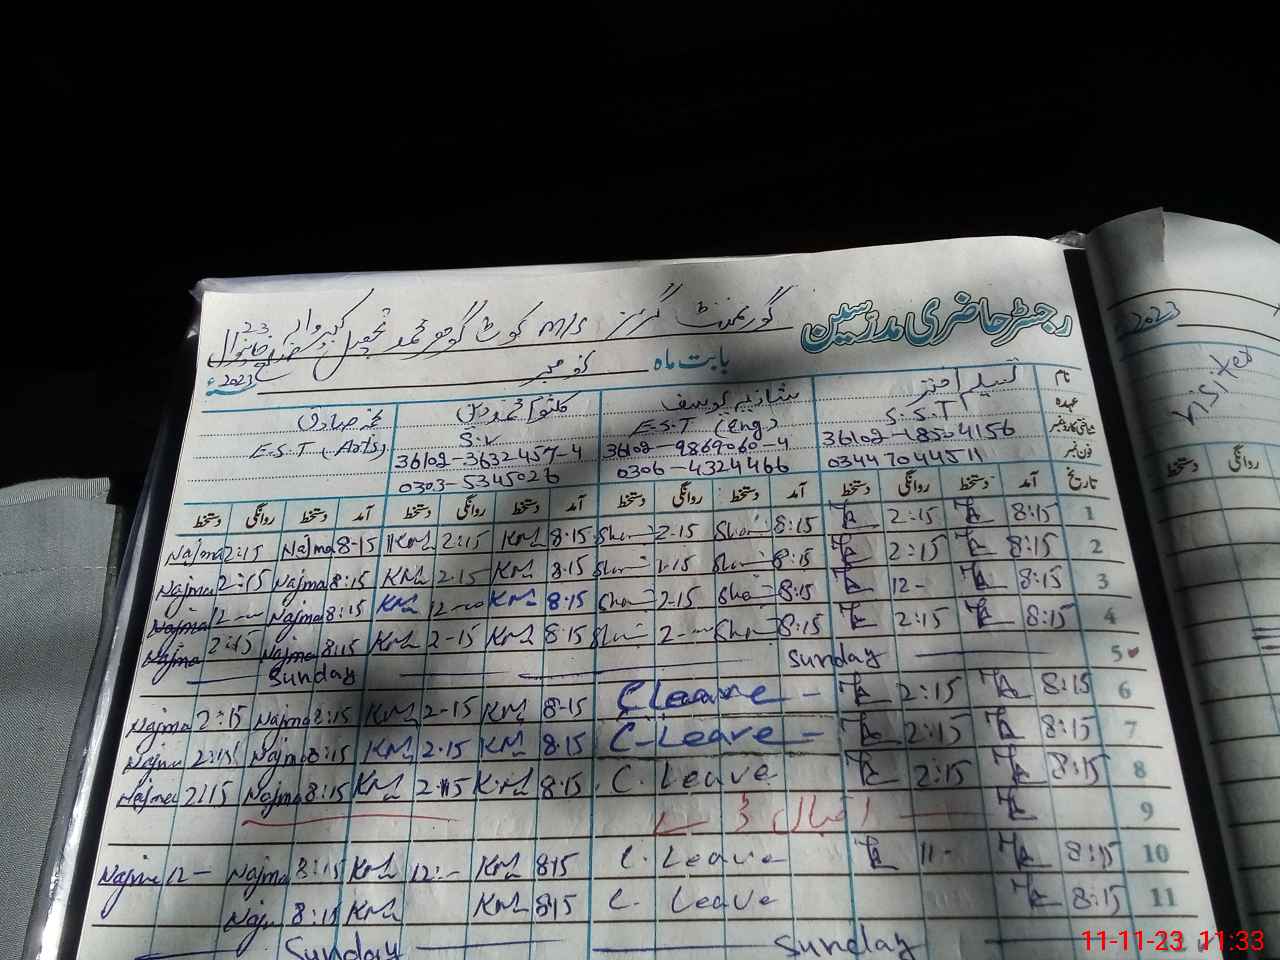 رجسٹر حاضری مدرسین گورنمنٹ گرلز M/S کوٹ گوجر محمد تحصیل کبیروالہ ضلع خانیوال
بابت ماہ نومبر 2023ء
نام تسلیم اختر شازیہ یوسف کلثوم نجمہ صادق
عہدہ S.S.T E.S.T (Eng) S.V E.S.T (Arts)
شناختی کارڈ نمبر 36102-18504156 36102-9869060-4 36102-3632457-4
فون نمبر 03447044511 0306-4324466 0303-5345026
تاریخ آمد دستخط روانگی دستخط آمد دستخط روانگی دستخط آمد دستخط روانگی دستخط آمد دستخط روانگی دستخط
1 8:15 2:15 8:15 2-15 8:15 KM 2:15 KM 8-15 Najma 2:15 Najma
2 8:15 2:15 8:15 8:15 KM 2-15 KM 8:15 Najma 2:15 Najma
3 8:15 12- 8:15 2-15 8:15 KM 12- KM 8:15 Najma 12- Najma
4 8:15 2:15 8:15 2- 8:15 KM 2-15 KM 8:15 Najma 2:15 Najma
5 Sunday Sunday
6 8:15 2:15 C Leave 8-15 KM 2-15 KM 8:15 Najma 2:15 Najma
7 8:15 2:15 C-Leave 8:15 KM 2-15 KM 8:15 Najma 2:15 Najma
8 8:15 2:15 C. Leave 8:15 KM 2:15 KM 8:15 Najma 2:15 Najma
9 اقبال ڈے
10 8:15 11- C. Leave 8:15 KM 12:- KM 8:15 Najma 12- Najma
11 8:15 C. Leave 8:15 KM KM 8:15
Sunday Sunday
2023
visited
روانگی دستخط
11-11-23 11:33